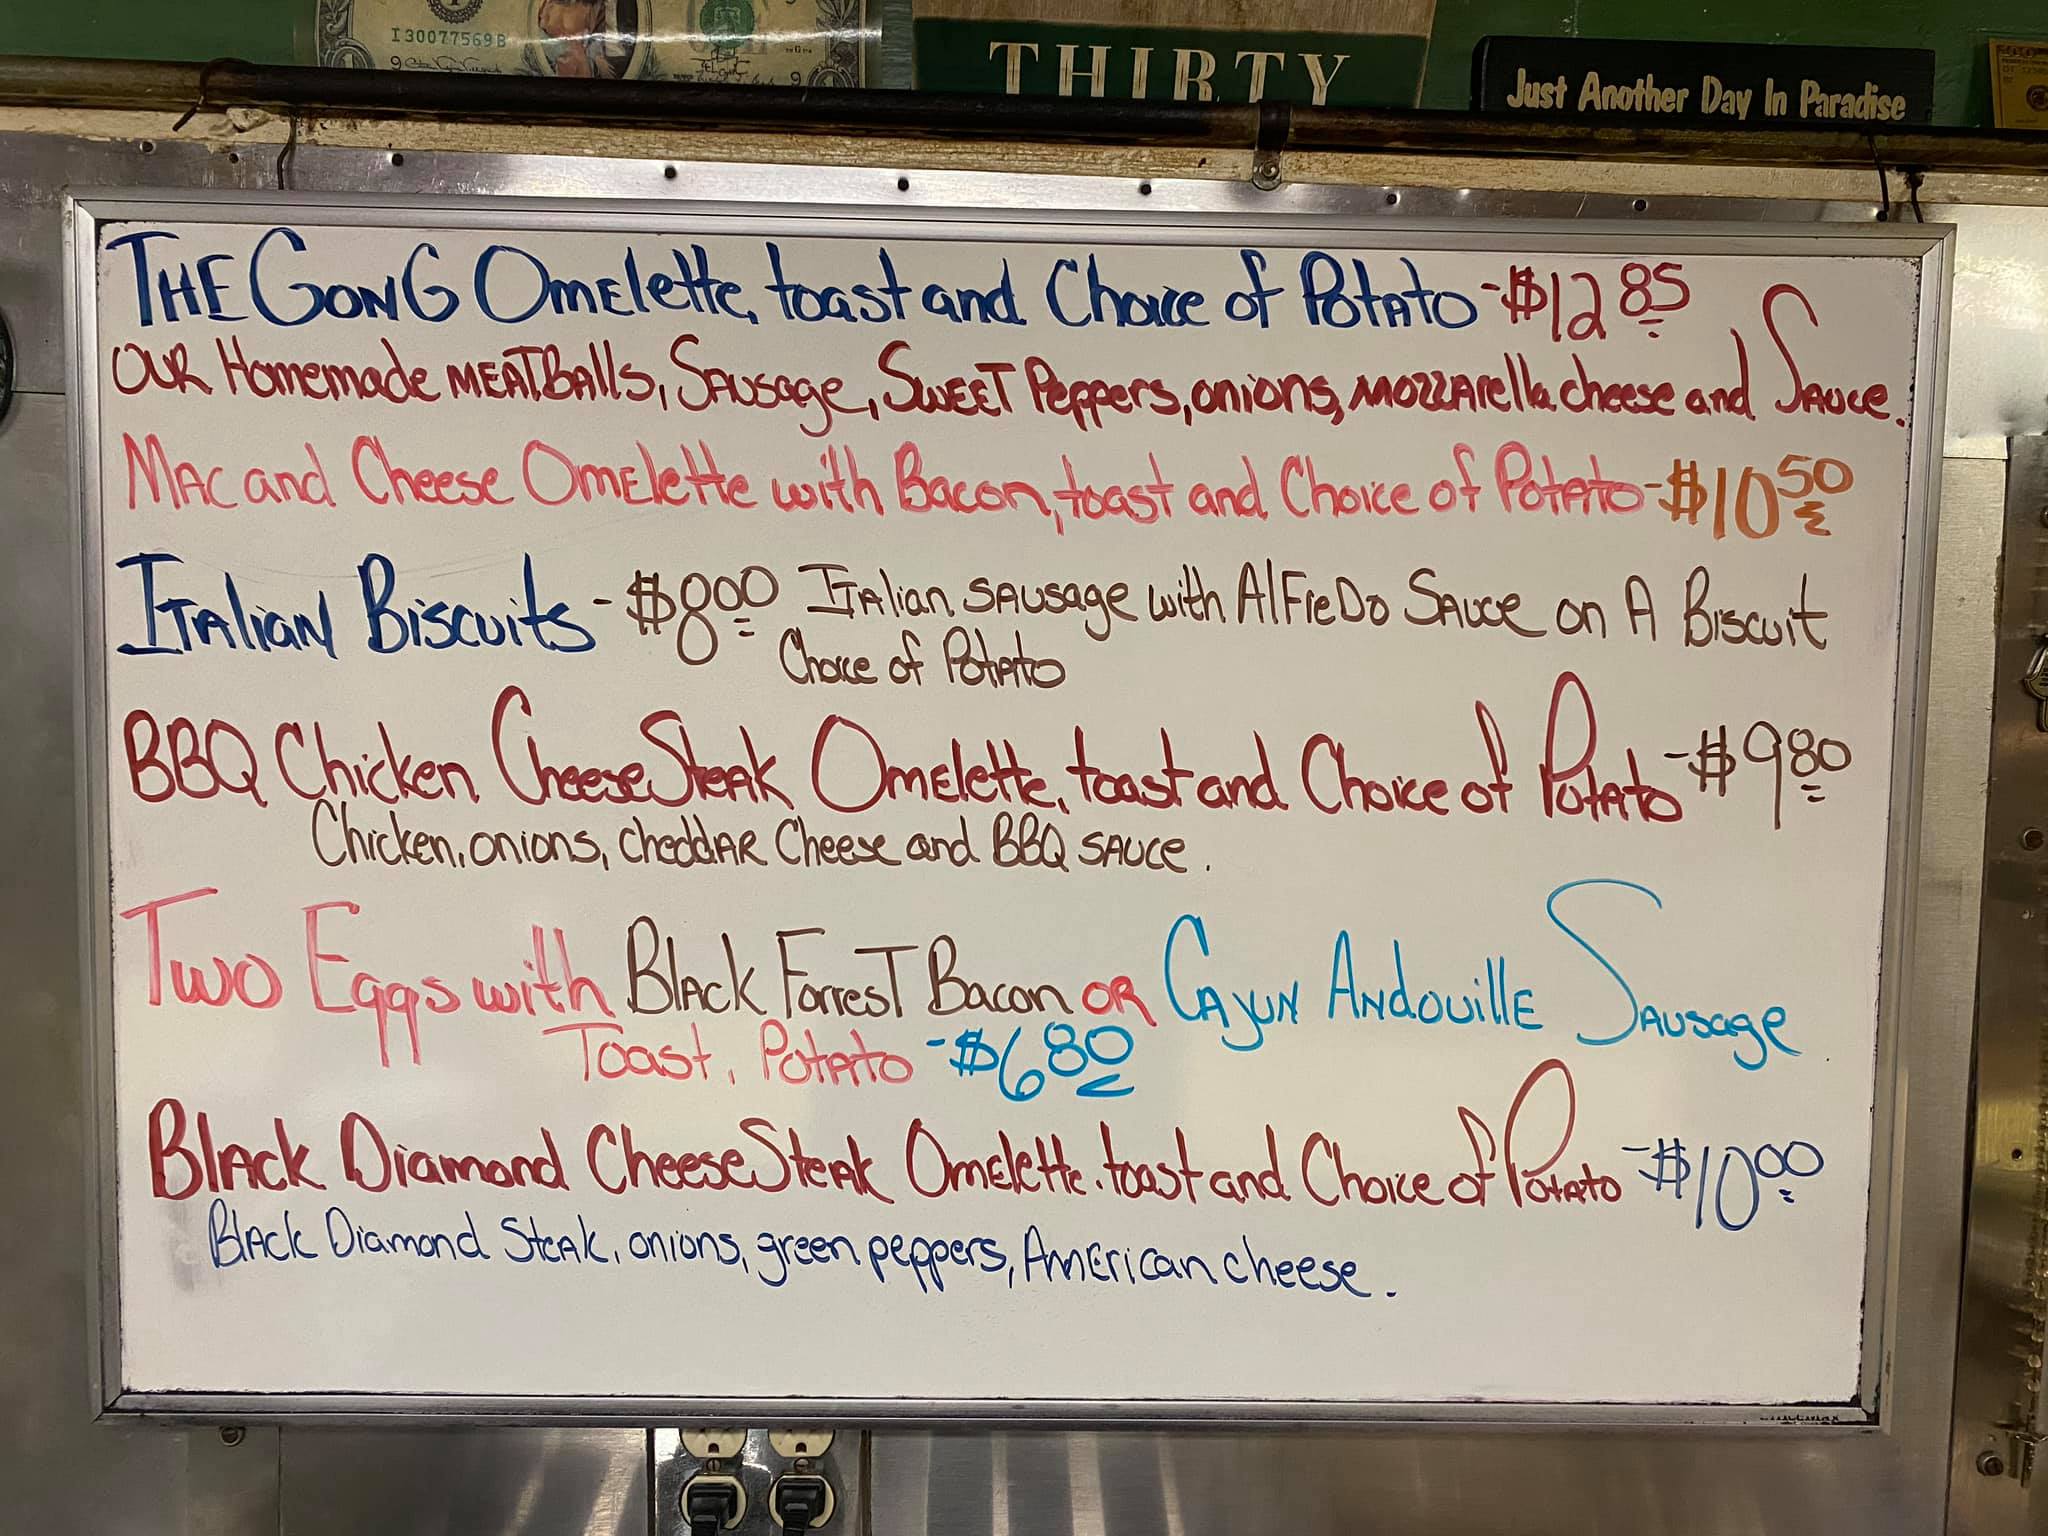 I30077569B
THIRTY
Just Another Day In Paradise
THE GONG Omelette, toast and Choice of Potato -$12.85
OUR Homemade MEATBalls, Sausage, SWEET Peppers, onions, mozzarella cheese and Sauce.
Mac and Cheese Omelette with Bacon, toast and Choice of Potato -$10.50
Italian Biscuits - $8.00 Italian sausage with AlFreDo Sauce on A Biscuit
Choice of Potato
BBQ Chicken CheeseSteak Omelette, toast and Choice of Potato -$9.80
Chicken, onions, cheddar Cheese and BBQ sauce.
Two Eggs with Black Forrest Bacon OR Cajun Andouille Sausage
Toast, Potato -$6.80
Black Diamond CheeseSteak Omelette, toast and Choice of Potato -$10.00
Black Diamond Steak, onions, green peppers, American cheese.